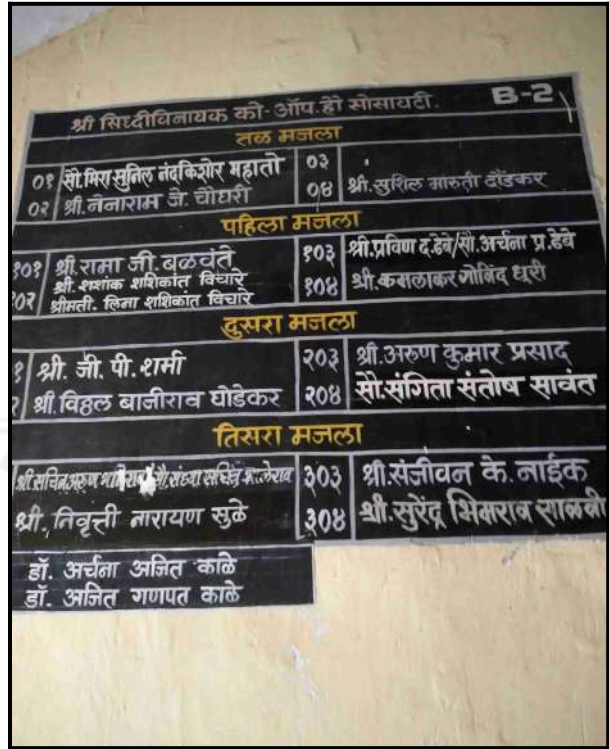 श्री सिध्दीविनायक को-ऑप.हौ सोसायटी. B-2
तळ मजला
०१ सौ.मिरा सुनिल नंदकिशोर महातो ०३
०२ श्री.नेनाराम जे. चौधरी ०४ श्री.सुशिल मारुती दौंडकर
पहिला मजला
१०१ श्री.रामा जी.बळवंते १०३ श्री.प्रविण द.डेबे/सौ.अर्चना प्र.डेबे
श्री.शशांक शशिकांत विचारे
१०२ श्रीमती. लिना शशिकांत विचारे १०४ श्री.कमलाकर गोविंद धुरी
दुसरा मजला
१ श्री. जी. पी. शर्मा २०३ श्री.अरुण कुमार प्रसाद
२ श्री.विठ्ठल बाजीराव घोडेकर २०४ सौ.संगिता संतोष सावंत
तिसरा मजला
श्री.सचिन अरुण सौ.संध्या सचिन भालेराव ३०३ श्री.संजीवन के. नाईक
श्री. निवृत्ती नारायण सुळे ३०४ श्री.सुरेंद्र भिमराव साळवी
डॉ. अर्चना अजित काळे
डॉ. अजित गणपत काळे